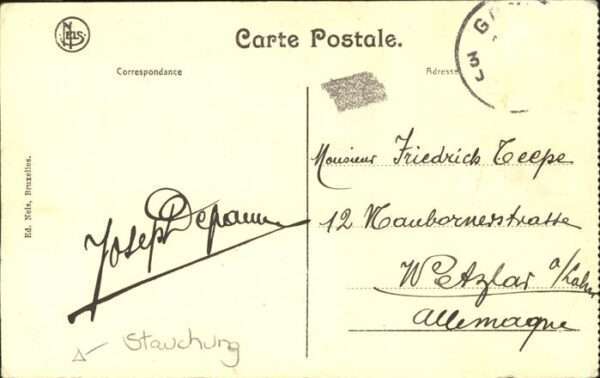 Nels
Carte Postale.
Correspondance
Adresse
Ed. Nels, Bruxelles.
Joseph Depauw
Monsieur Friedrich Teepe
12 Naubornerstrasse
Wetzlar a/Lahn
Allemagne
Stauchung